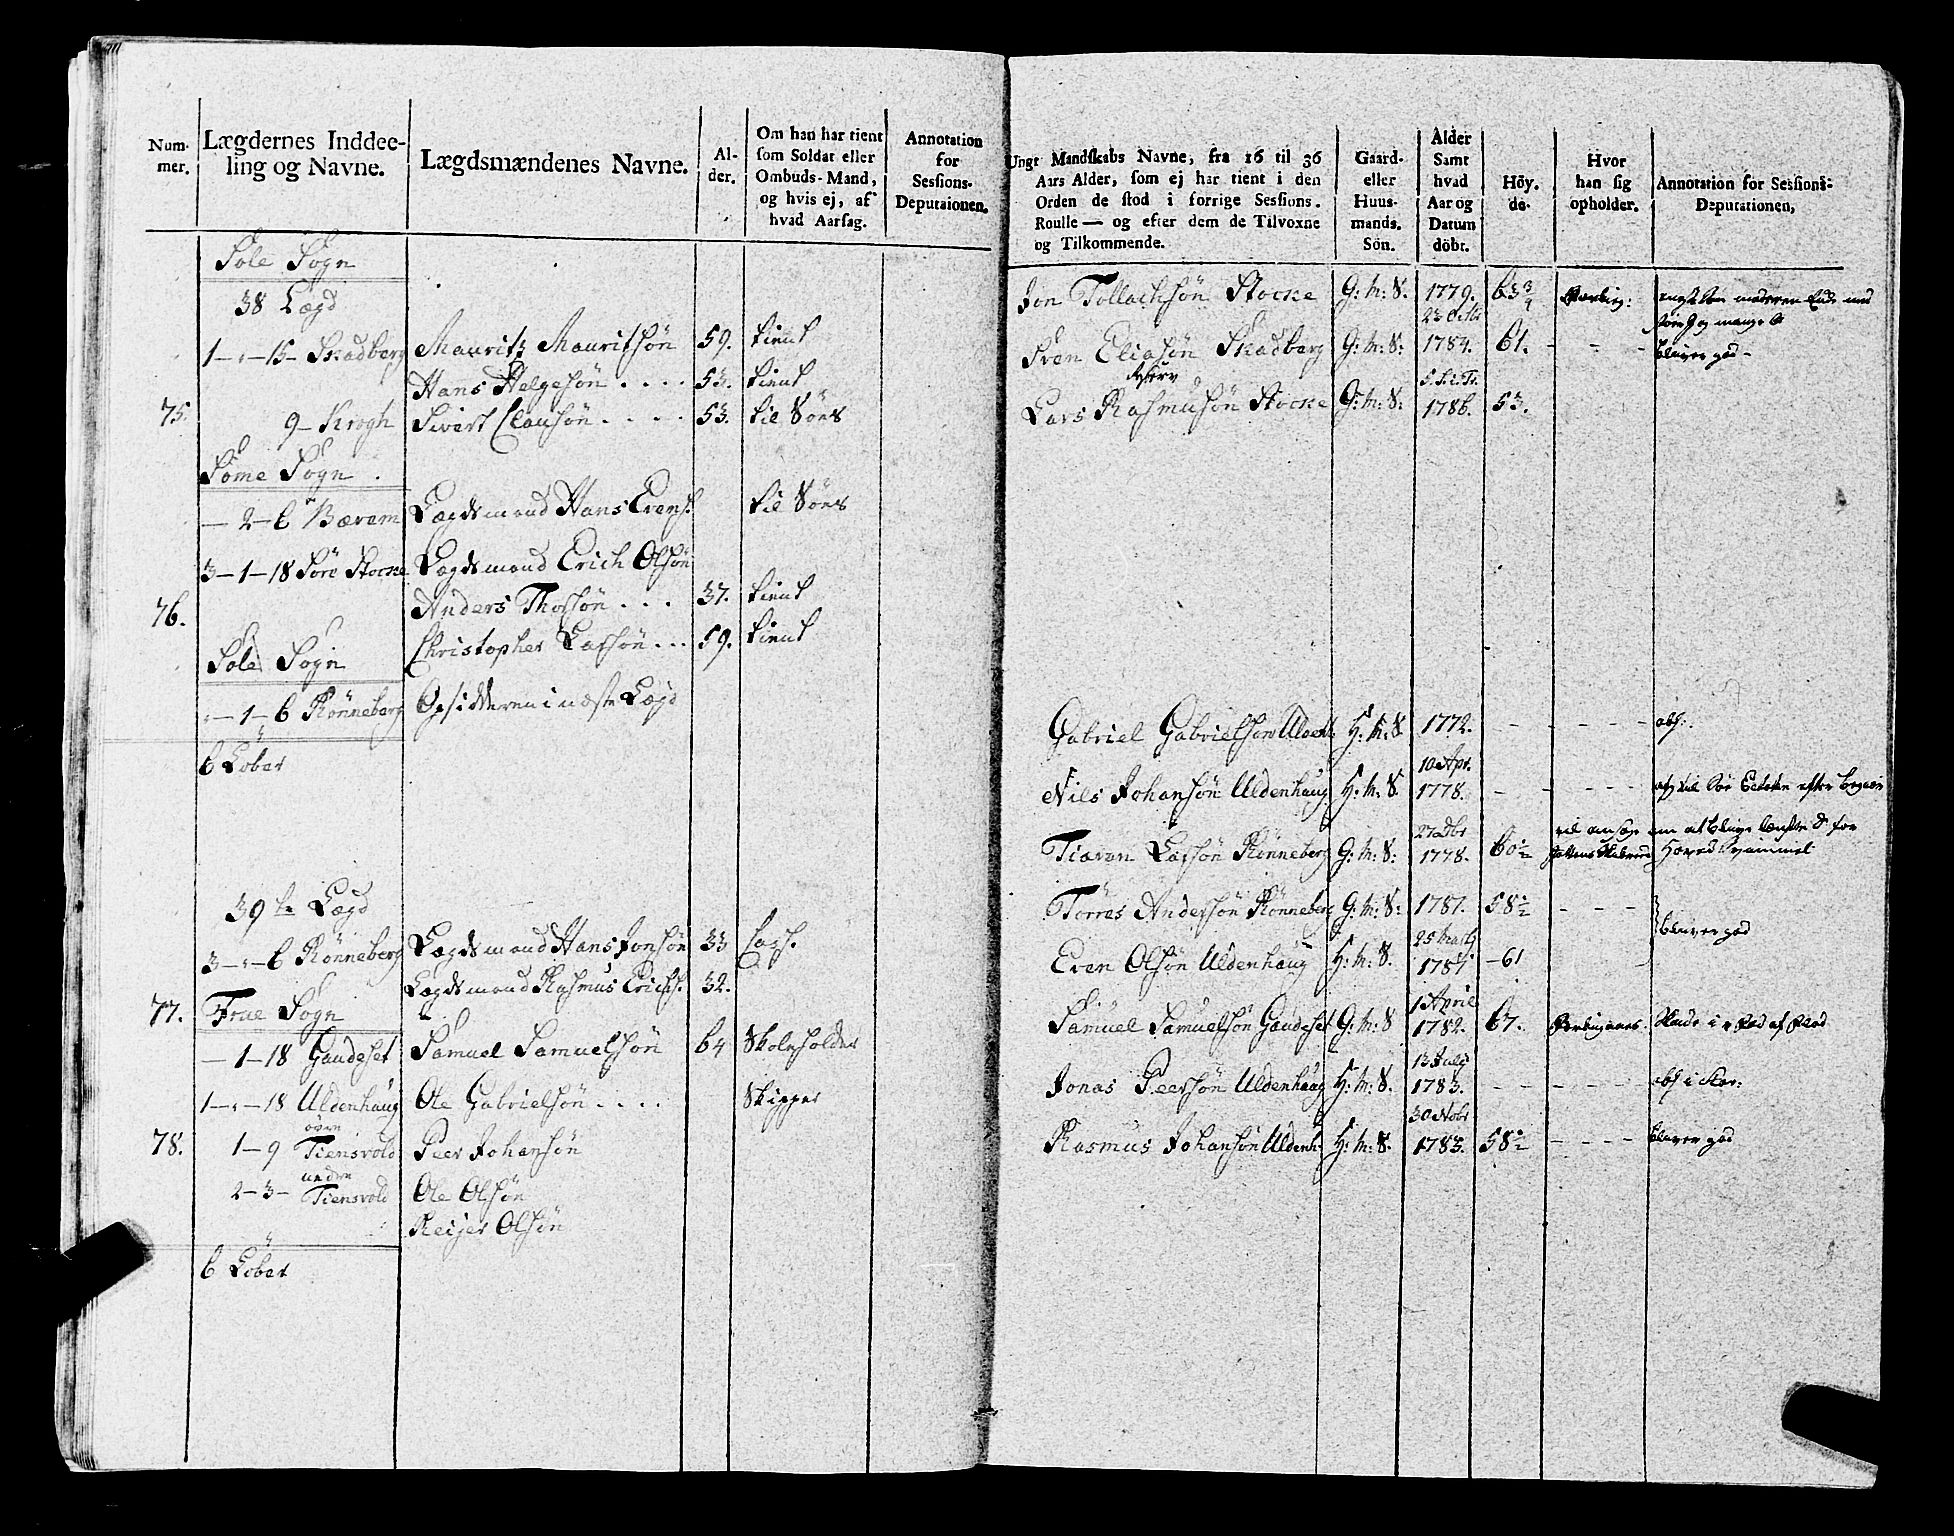 Num-
mer.
Lægdernes Inddee-
ling og Navne.
Lægdsmændenes Navne.
Al-
der.
Om han har tient
som Soldat eller
Ombuds-Mand,
og hvis ej, af
hvad Aarsag.
Annotation
for
Sessions-
Deputaionen.
Sole Sogn
38 Lægd
1-"-15- Skadberg Mauritz Mauritsön 59. tient
Hans Helgesön .... 53. tient
75. 9- Krogh Sivert Clausön .... 53. til Söes
Some Sogn
- 2-6 Bærem Lægdsmand Hans Evens. til Söes
3-1-18 Söre Stocke Lægdsmand Erich Olsön
76. Anders Thorsön ... 37. tient
Christopher Larsön ... 59. tient
Sole Sogn
"-1-6 Rönneberg Opsidderen i næste Lægd
6 Löber
39te Lægd
3-"-6 Rönneberg Lægdsmand Hans Jonsön 33
Lægdsmand Rasmus Erichs. 32.
77. Frue Sogn
-1-18 Gaudeset Samuel Samuelsön 64 Skoleholder
1-"-18 Uldenhaug Ole Gabrielsön .... Skipper
78. 1-9 övre Tiensvold Peer Johansön
2-3- nedre Tiensvold Ole Olsön
Reijer Olsön
6 Löber
Ungt Mandskabs Navne, fra 16 til 36
Aars Alder, som ej har tient i den
Orden de stod i forrige Sessions.
Roulle — og efter dem de Tilvoxne
og Tilkommende.
Gaard-
eller
Huus-
mands.
Sön.
Alder
Samt
hvad
Aar og
Datum
döbt.
Höy.
de.
Hvor
han sig
opholder.
Annotation for Sessions-
Deputationen,
Jon Tollachsön Stocke G: M: S. 1779. 63 3/4
23 Octbr
Sven Eliasön Skadberg G: M: S: 1784. 61. - - - bliver god -
Lars Rasmusön Stocke G: M: S: 1786. 53.
Gabriel Gabrielsön H: M: S 1772. - - - - - abs:
10 Apr.
Nils Johansön Uldenhaug H: M: S. 1778. - - - - -
Larsön Rönneberg G: M: S: 1778. 60 1/2
Törres Andersön Rönneberg G: M: S: 1781. 58 1/2 - - -
bliver god
25 Martz
Even Olsön Uldenhaug H: M: S. 1781 -61
1 April
Samuel Samuelsön Gaudeset G: M: S 1782. 67.
13 July
Jonas Peersön Uldenhaug H: M: S. 1783. - - - - -
30 Novbr
Rasmus Johansön Uldenh: H: M: S. 1783. 58 1/2 - - - - bliver god